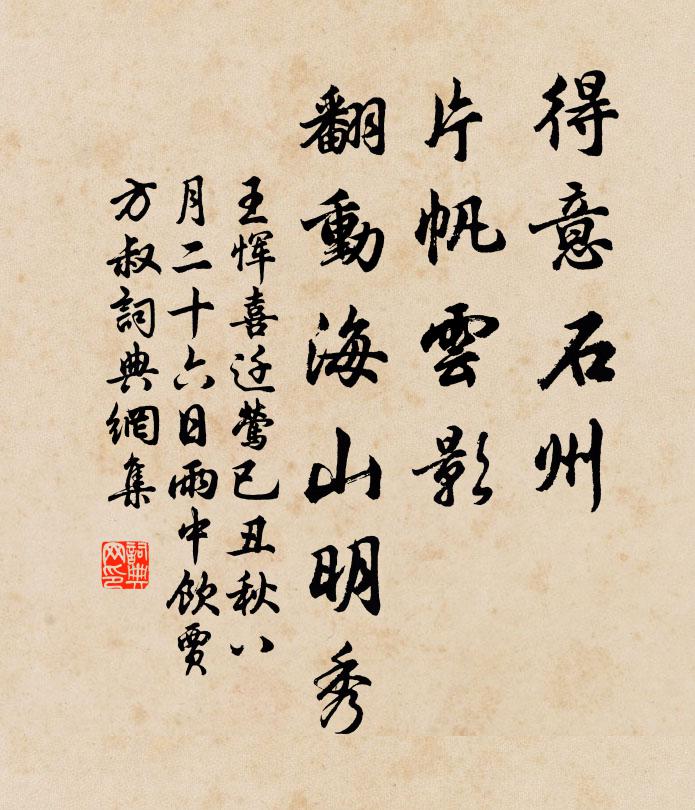 得意石州
片帆雲影
翻動海山明秀
王惲喜迁鶯己丑秋八
月二十六日雨中飲賈
方叔詞典網集
詞典
网印